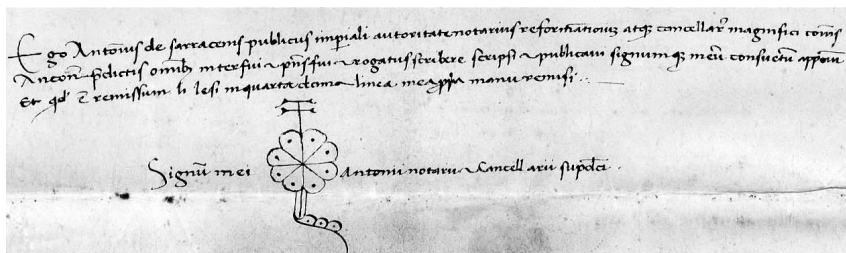 Ego Antonius de sarracenis publicus imperiali autoritate notarius reformationũ atq; cancellar̃ magnifici comis̃
Ancoñ p̃dictis omib; interfui & p̃ns fui & rogatus scribere scripsi & publicavi signum q; meũ consuetũ apposui
Et qđ ẽ remissum li lesi in quarta decima linea mea ꝓpia manu remisi
Signũ mei Antonii notarii & Cancellarii sup̃dcĩ